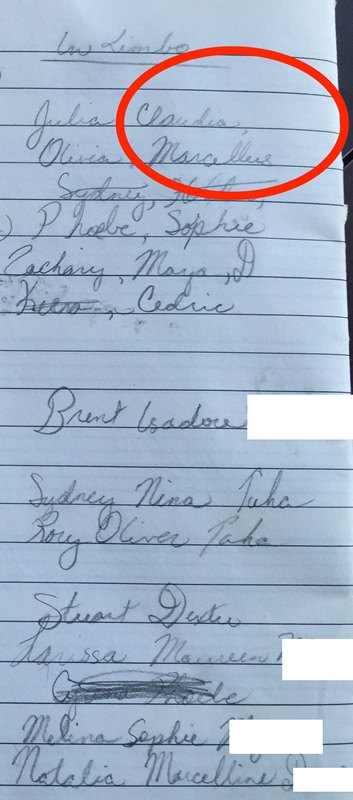 In Limbo
Julia Claudia,
Olivia, Marcellus
Sydney,
Phoebe, Sophie
Zachary, Maya, D
Keira, Cedric
Brent Isadore
Sydney Nina Taha
Rory Oliver Taha
Stuart Dexter
Larissa Maureen M
Melina Sophie
Natalia Marcelline D